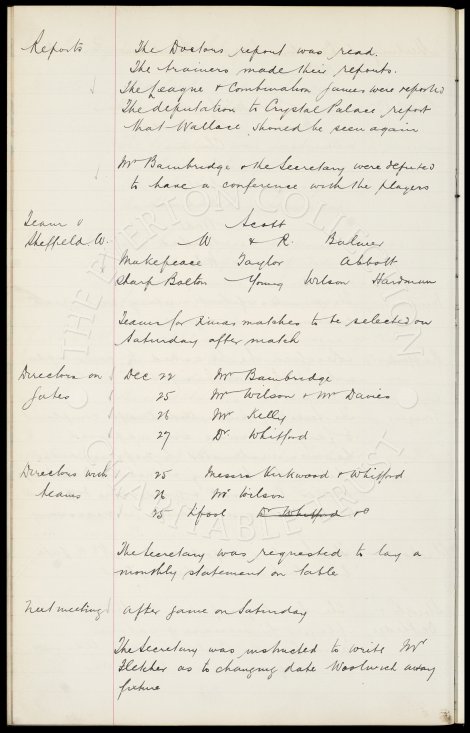 Reports The Doctors report was read.
The trainers made their reports.
The League & Combination games were reported
The deputation to Crystal Palace report
that Wallace should be seen again
Mr Bainbridge & the Secretary were deputed
to have a conference with the players
Team v Scott
Sheffield W. W & R. Balmer
Makepeace Taylor Abbott
Sharp Bolton Young Wilson Hardman
Teams for Xmas matches to be selected on
Saturday after match
Directors on Dec 22 Mr Bainbridge
Gates 25 Mr Wilson & Mr Davies
26 Mr Kelly
27 Dr Whitford
Directors with 25 Messrs Kirkwood & Whitford
teams 26 Mr Wilson
25 Lpool Dr Whitford
The Secretary was requested to lay a
monthly statement on table
Next meeting after game on Saturday
The Secretary was instructed to write Mr
Fletcher as to changing date Woolwich away
fixture
THE EVERTON COLLECTION
CHARITABLE TRUST